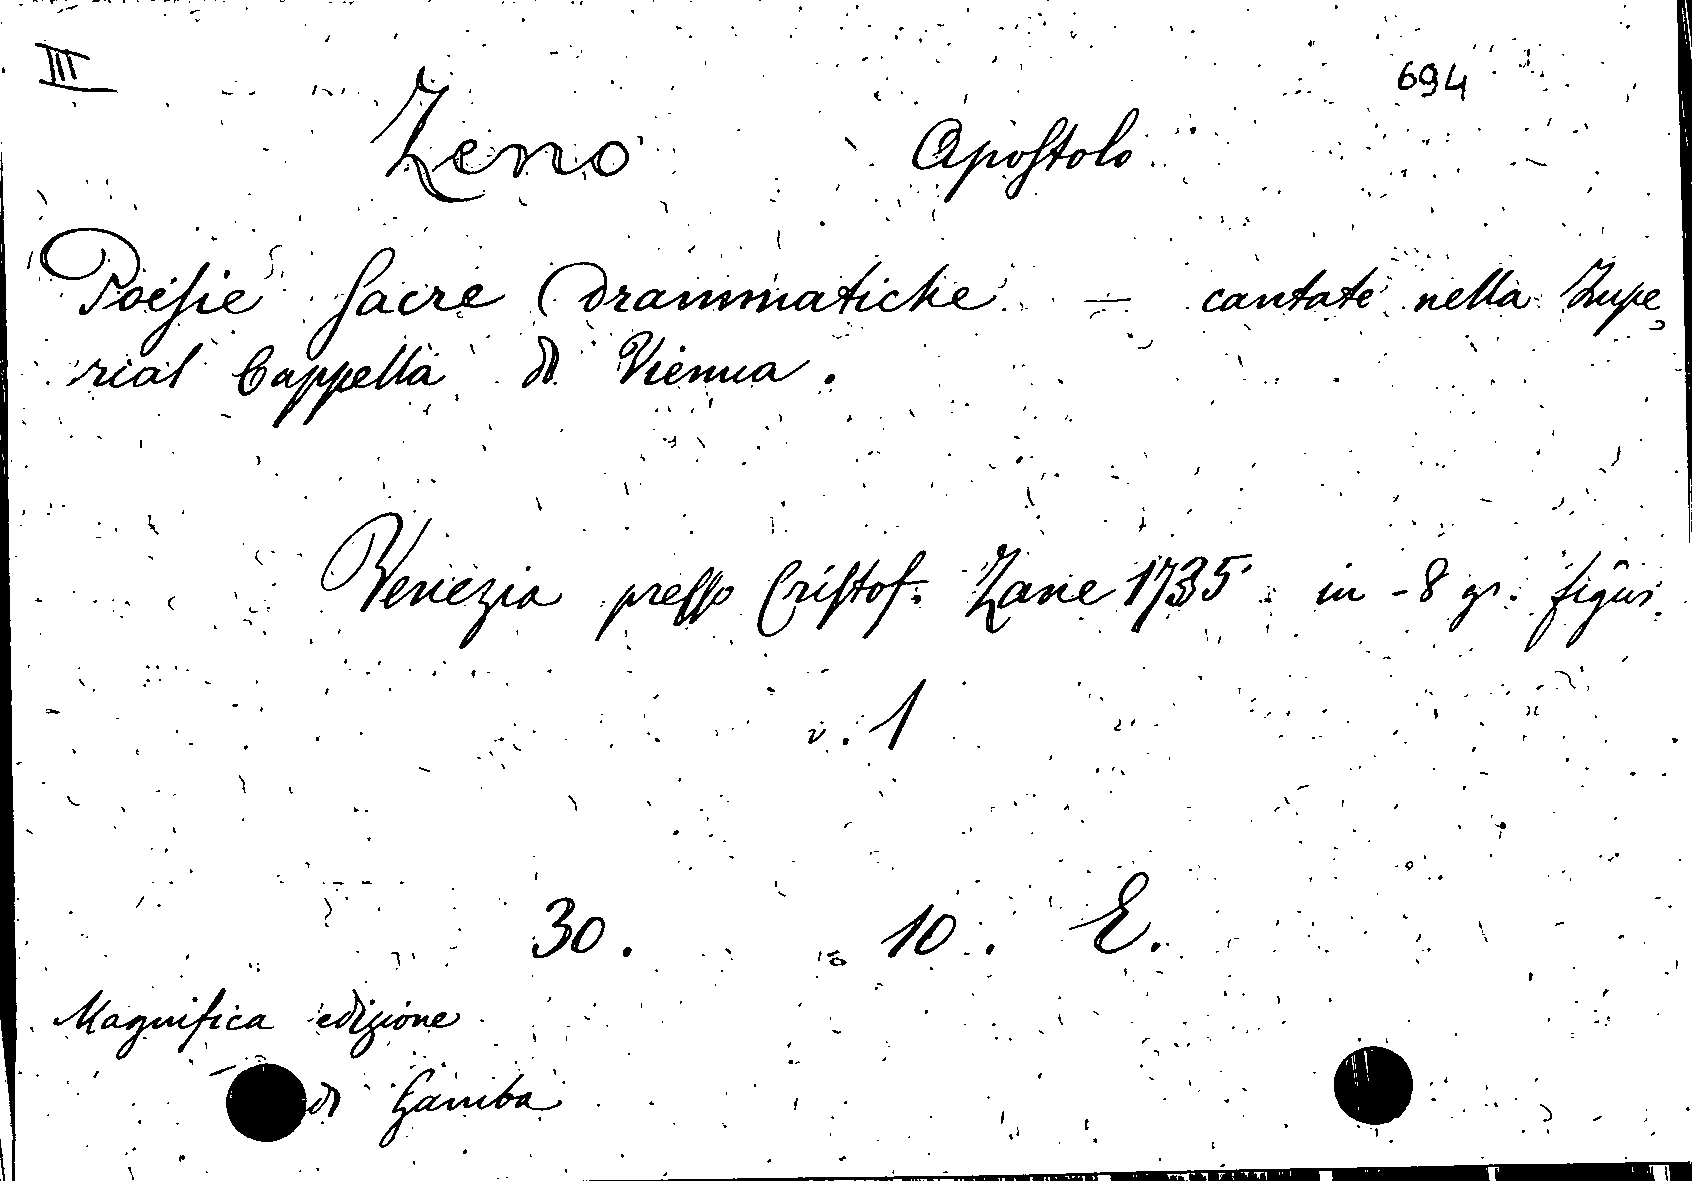 III
694
Zeno Apostolo
Poesie sacre drammatiche — cantate nella Impe
rial Cappella di Vienna.
Venezia presso Cristof. Zane 1735 in -8 gr. figur.
v. 1
30. 10. E.
Magnifica edizione
di Gamba